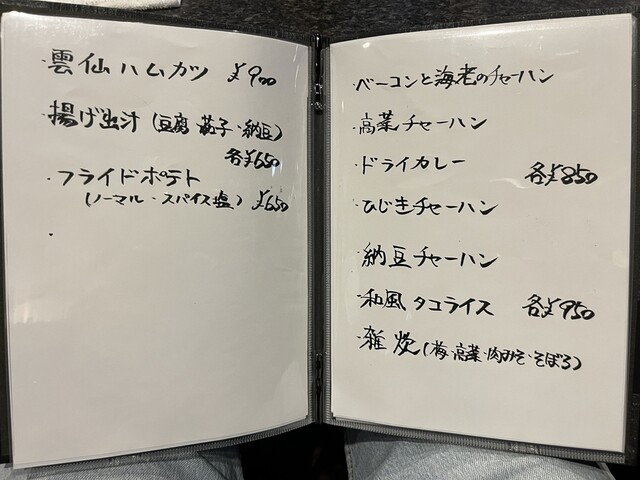 ・雲仙ハムカツ ¥900
・揚げ出汁(豆腐・茄子・納豆)
各¥650
・フライドポテト
(ノーマル・スパイス塩) ¥650
・
・ベーコンと海老のチャーハン
・高菜チャーハン
・ドライカレー 各¥850
・ひじきチャーハン
・納豆チャーハン
・和風タコライス 各¥950
・雑炊(梅・高菜・肉みそ・そぼろ)